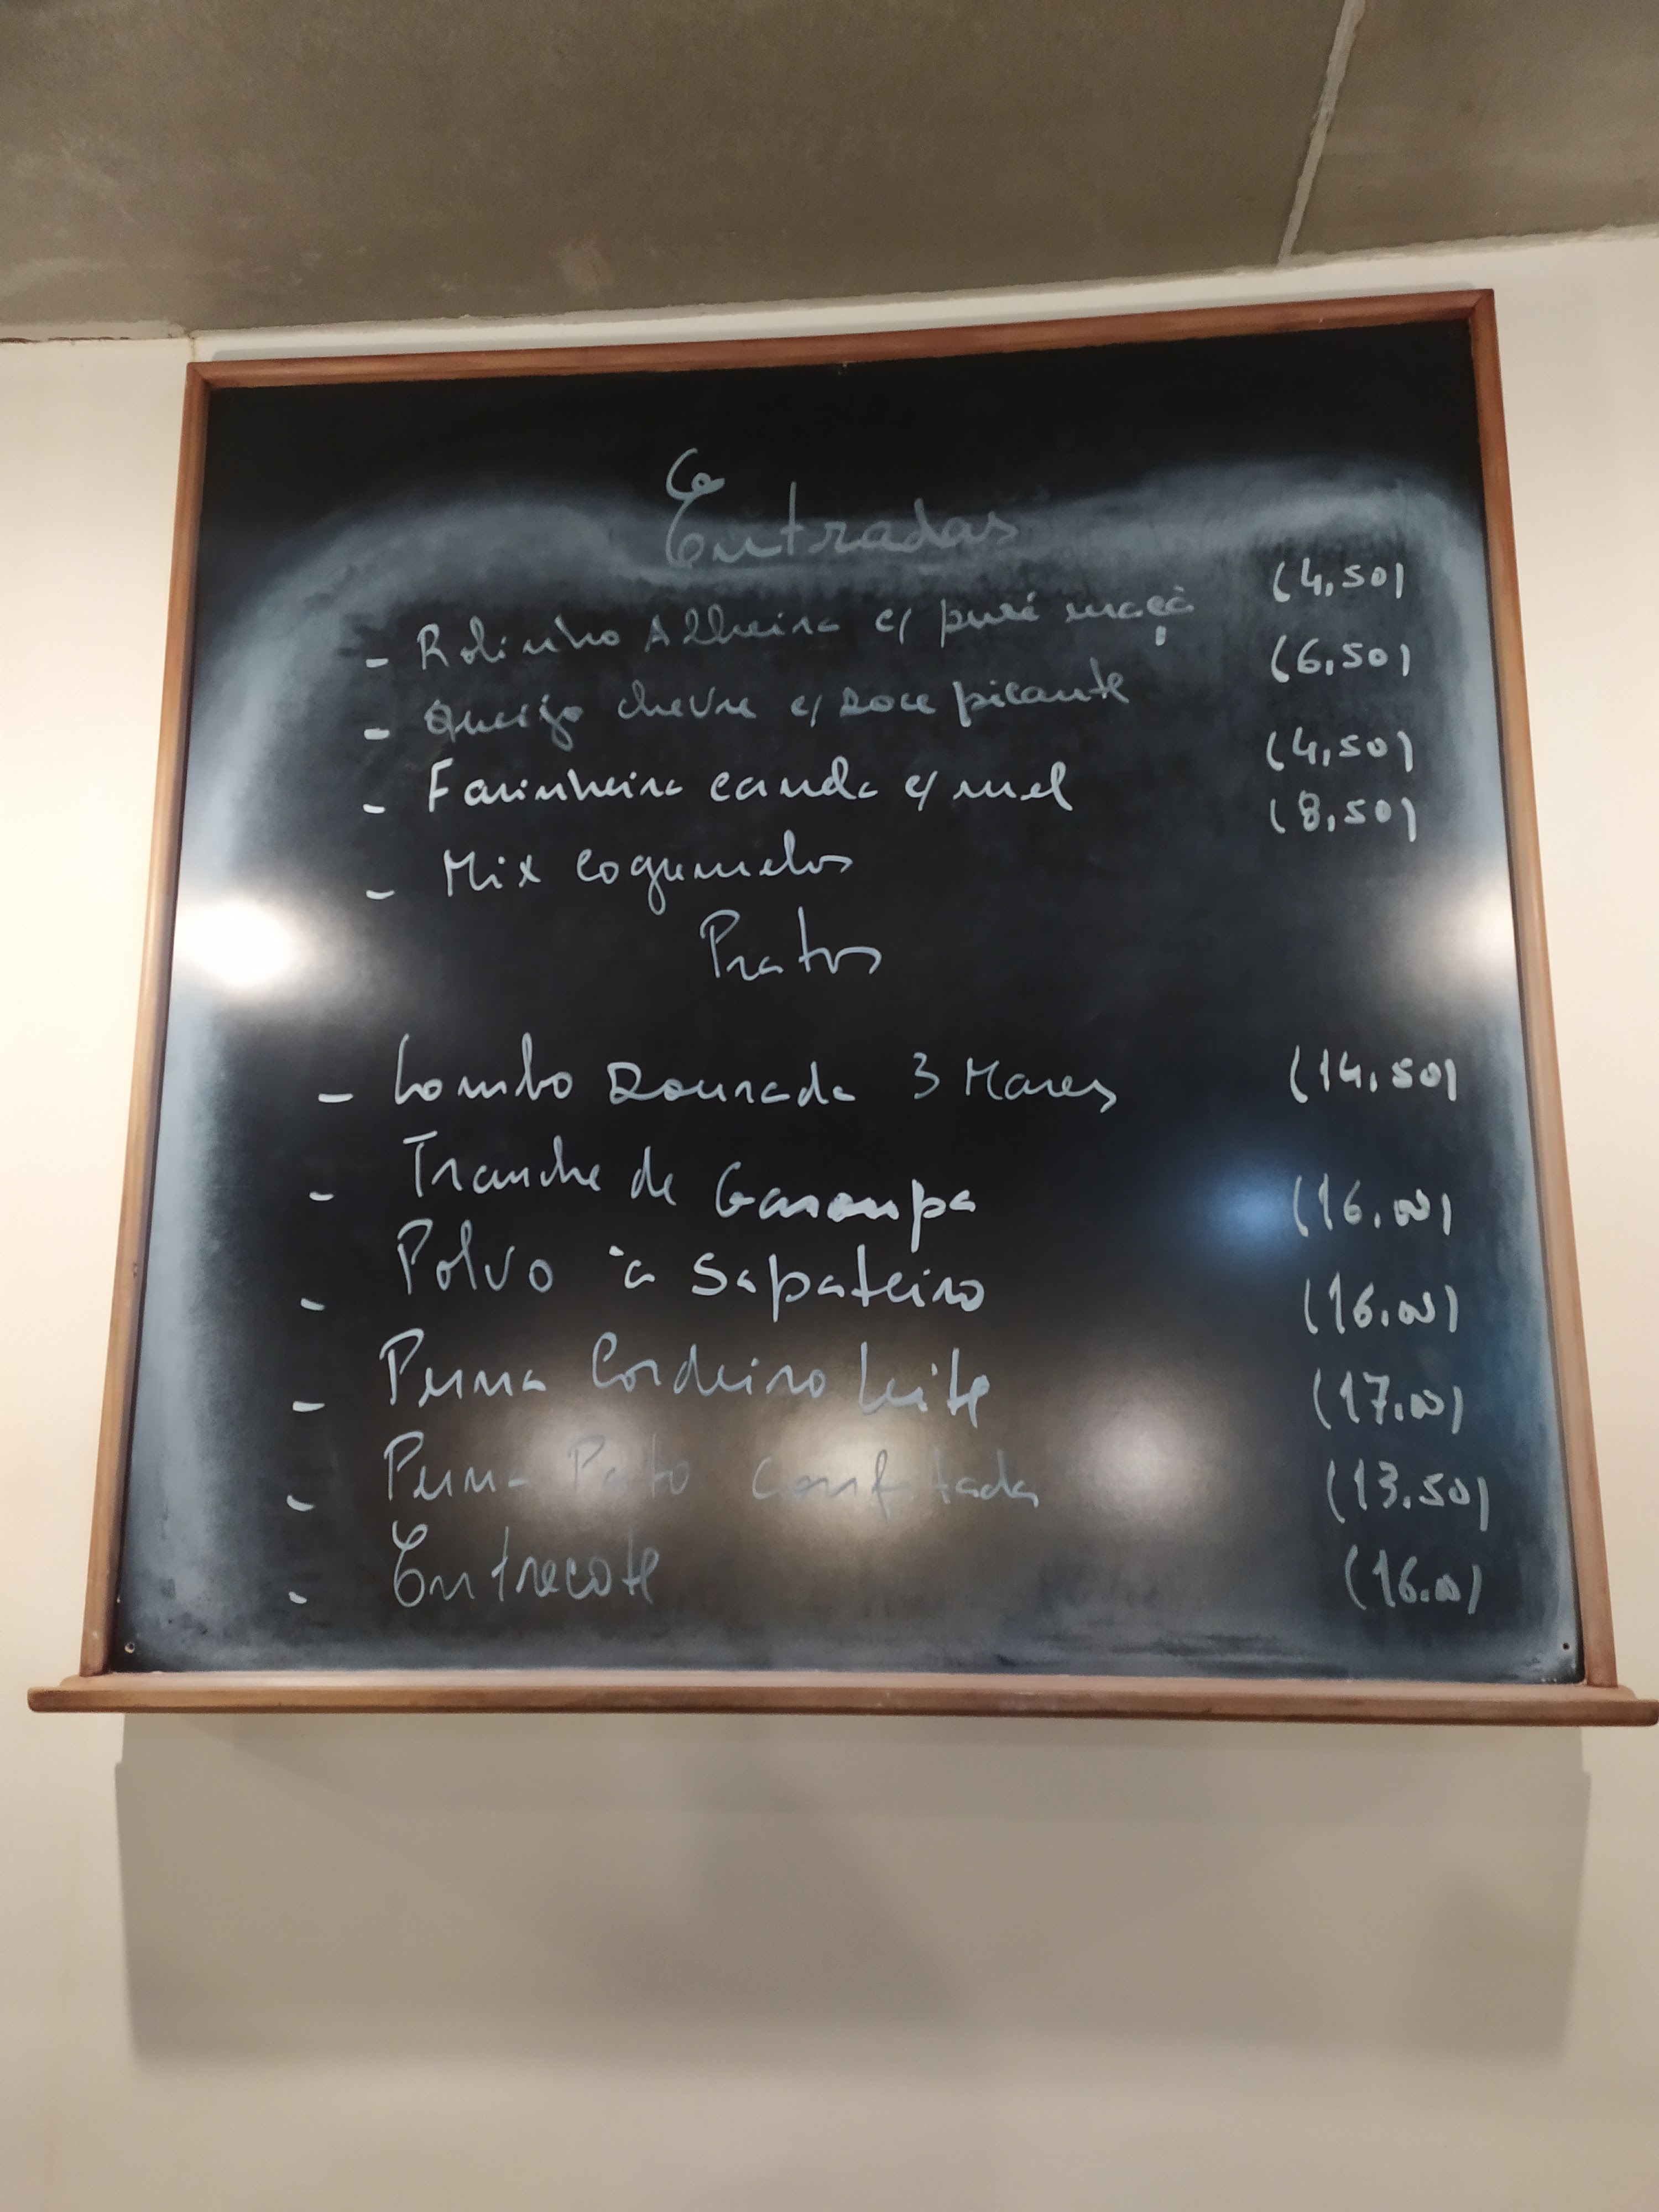 Entradas
- Rolinho Alheira c/ puré maçã (4,50)
- Queijo chevre c/ Doce picante (6,50)
- Farinheira c/ mel (4,50)
- Mix cogumelos (8,50)
Pratos
- Lombo Dourada 3 Mares (14.50)
- Tranche de Garoupa (16.00)
- Polvo à Sapateiro (16.00)
- Perna Cordeiro Leite (17.00)
- Perna Pato Confitada (13.50)
- Entrecote (16.00)